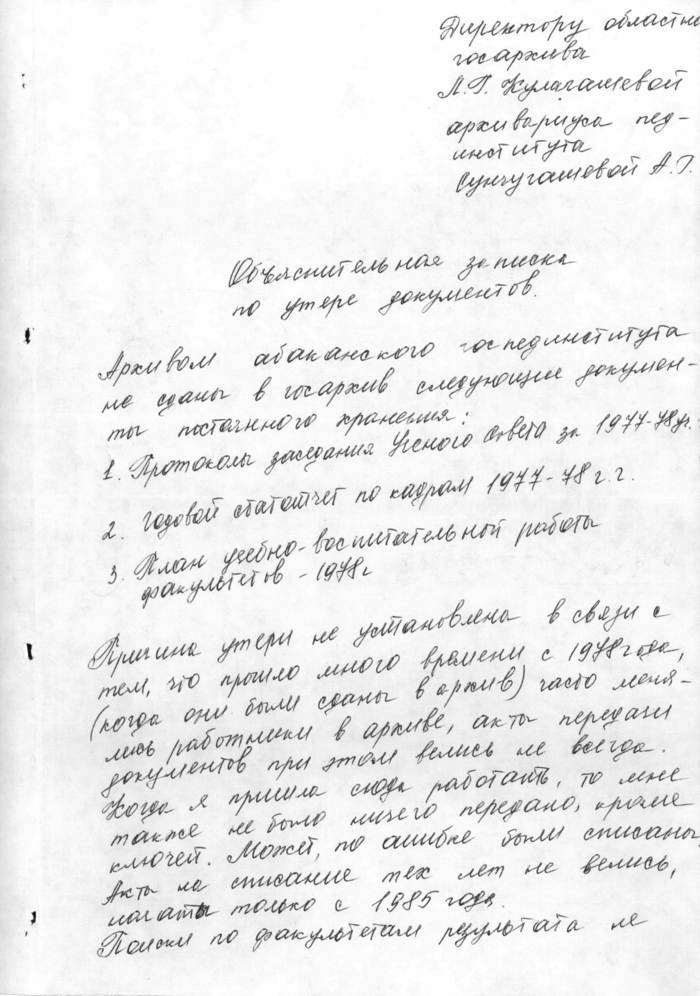 Директору областн
госархива
Л.Г. Кулагашевой
архивариуса пед-
института
Сунчугашевой А.Г.
Объяснительная записка
по утере документов.
Архивом абаканского госпединститута
не сданы в госархив следующие докумен-
ты постоянного хранения:
1. Протоколы заседания Ученого Совета за 1977-78 уч.
2. Годовой статотчет по кадрам 1977-78 г.г.
3. План учебно-воспитательной работы
факультетов - 1978г
Причина утери не установлена в связи с
тем, что прошло много времени с 1978 года,
(когда они были сданы в архив) часто меня-
лись работники в архиве, акты передачи
документов при этом велись не всегда.
Когда я пришла сюда работать, то мне
также не было ничего передано, кроме
ключей. Может, по ошибке были списаны.
Акты на списание тех лет не велись,
начаты только с 1985 года.
Поиски по факультетам результата не